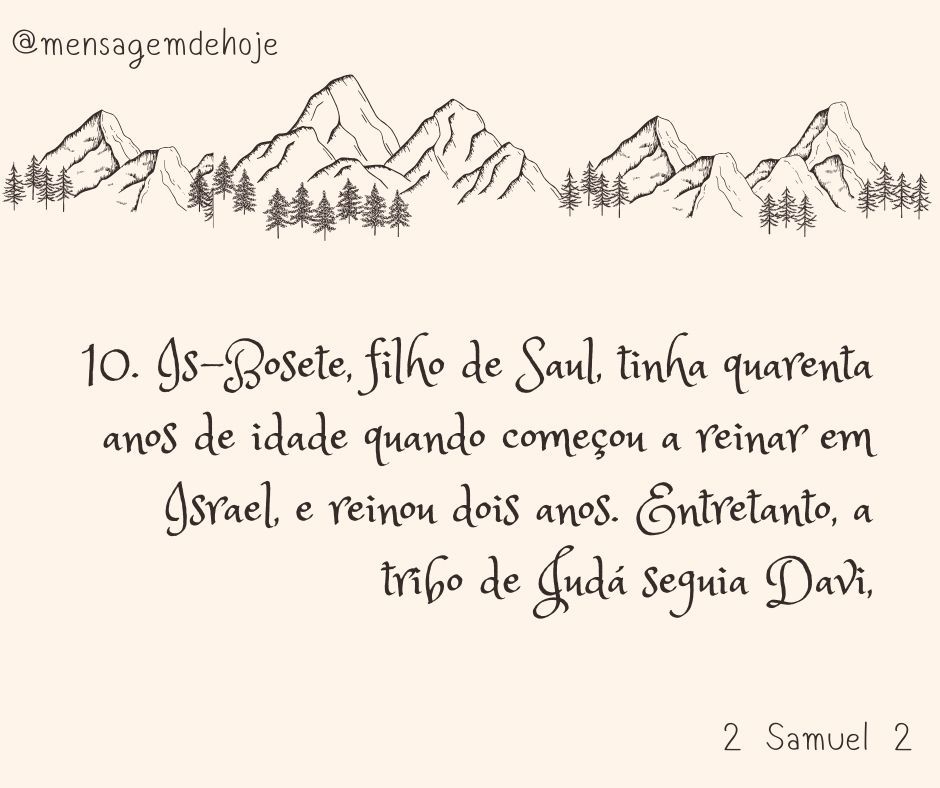 @mensagemdehoje
10. Is-Bosete, filho de Saul, tinha quarenta
anos de idade quando começou a reinar em
Israel, e reinou dois anos. Entretanto, a
tribo de Judá seguia Davi,
2 Samuel 2